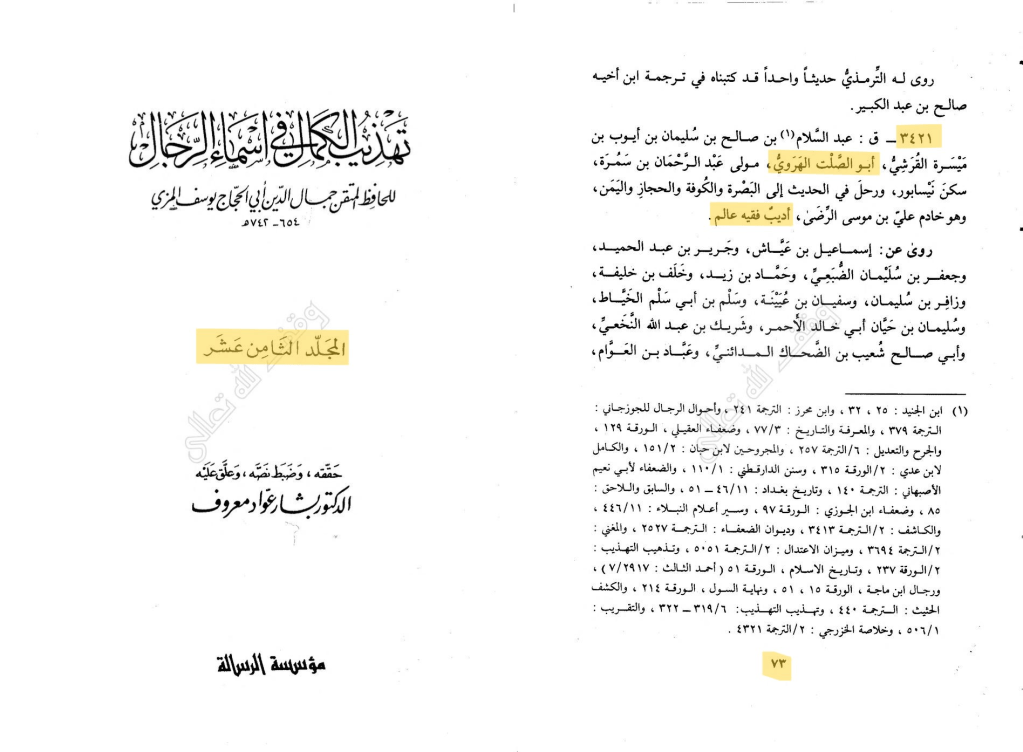 روى له التِّرمذيُّ حديثاً واحداً قد كتبناه في ترجمة ابن أخيه
صالح بن عبد الكبير.
٣٤٢١ ـ ق : عبد السَّلام(١) بن صالح بن سُليمان بن أيوب بن
مَيْسرة القُرَشيُّ، أبو الصَّلْت الهَرَويُّ، مولى عَبْد الرَّحْمان بن سَمُرَة،
سكنَ نَيْسابور، ورحلَ في الحديث إلى البَصْرة والكُوفة والحجاز واليَمَن،
وهو خادم عليّ بن موسى الرِّضىٰ، أديبٌ فقيه عالم.
روىٰ عن: إسماعيل بن عَيَّاش، وجَرير بن عبد الحميد،
وجعفر بن سُلَيْمان الضُّبَعِيِّ، وحَمَّاد بن زيد، وخَلَف بن خليفة،
وزافِر بن سُليمان، وسفيان بن عُيَيْنة، وسَلْم بن أبي سَلْم الخَيَّاط،
وسُليمان بن حَيَّان أبي خالد الأحمر، وشَريك بن عبد الله النَّخعيِّ،
وأبي صالح شُعيب بن الضَّحاك المدائنيِّ، وعَبَّاد بن العَوَّام،
(١) ابن الجنيد : ٢٥ ، ٣٢ ، وابن محرز : الترجمة ٢٤١ ، وأحوال الرجال للجوزجاني :
الترجمة ٣٧٩ ، والمعرفة والتاريخ : ٣/ ٧٧ ، وضعفاء العقيلي ، الورقة ١٢٩ ،
والجرح والتعديل : ٦/الترجمة ٢٥٧ ، والمجروحين لابن حبان : ٢/ ١٥١ ، والكامل
لابن عدي : ٢/الورقة ٣١٥ ، وسنن الدارقطني : ١/ ١١٠ ، والضعفاء لأبي نعيم
الأصبهاني : الترجمة ١٤٠ ، وتاريخ بغداد : ١١/ ٤٦ ـ ٥١ ، والسابق واللاحق :
٨٥ ، وضعفاء ابن الجوزي : الورقة ٩٧ ، وسير أعلام النبلاء : ١١/ ٤٤٦ ،
والكاشف : ٢/الترجمة ٣٤١٣ ، وديوان الضعفاء : الترجمة ٢٥٢٧ ، والمغني :
٢/الترجمة ٣٦٩٤ ، وميزان الاعتدال : ٢/الترجمة ٥٠٥١ ، وتذهيب التهذيب :
٢/الورقة ٢٣٧ ، وتاريخ الاسلام ، الورقة ٥١ (أحمد الثالث : ٢٩١٧/ ٧) ،
ورجال ابن ماجة ، الورقة ١٥ ، ٥١ ، ونهاية السول ، الورقة ٢١٤ ، والكشف
الحثيث : الترجمة ٤٤٠ ، وتهذيب التهذيب: ٦/ ٣١٩ ـ ٣٢٢ ، والتقريب :
١/ ٥٠٦ ، وخلاصة الخزرجي : ٢/الترجمة ٤٣٢١ .
٧٣
تهذيب الكمال في أسماء الرجال
للحافظ المتقن جمال الدين أبي الحجاج يوسف المزي
٦٥٤ ـ ٧٤٢ هـ
المجلد الثامن عشر
حققه، وضبط نصه، وعلق عليه
الدكتور بشار عواد معروف
مؤسسة الرسالة
وقف لله تعالى
وقف لله تعالى